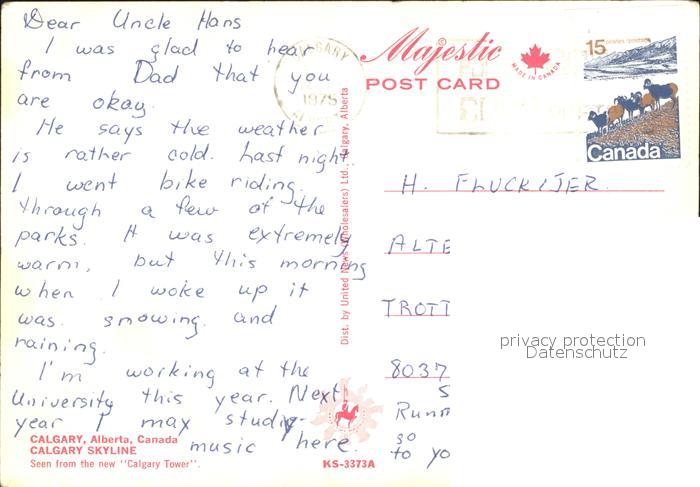 Dear Uncle Hans
I was glad to hear
from Dad that you
are okay.
He says the weather
is rather cold. Last night
I went bike riding.
through a few of the
parks. It was extremely
warm, but this morning
when I woke up it
was snowing and
raining.
I'm working at the
University this year. Next
year I may study
music here.
CALGARY, Alberta, Canada
CALGARY SKYLINE
Seen from the new "Calgary Tower".
KS-3373A
Dist. by United News (Wholesalers) Ltd., Calgary, Alberta
CALGARY
1975
Majestic
POST CARD
MADE IN CANADA
15
Canada
H. FLUCKIJER.
ALTE
TROTT
8037
S
Runn
30
to yo
privacy protection
Datenschutz